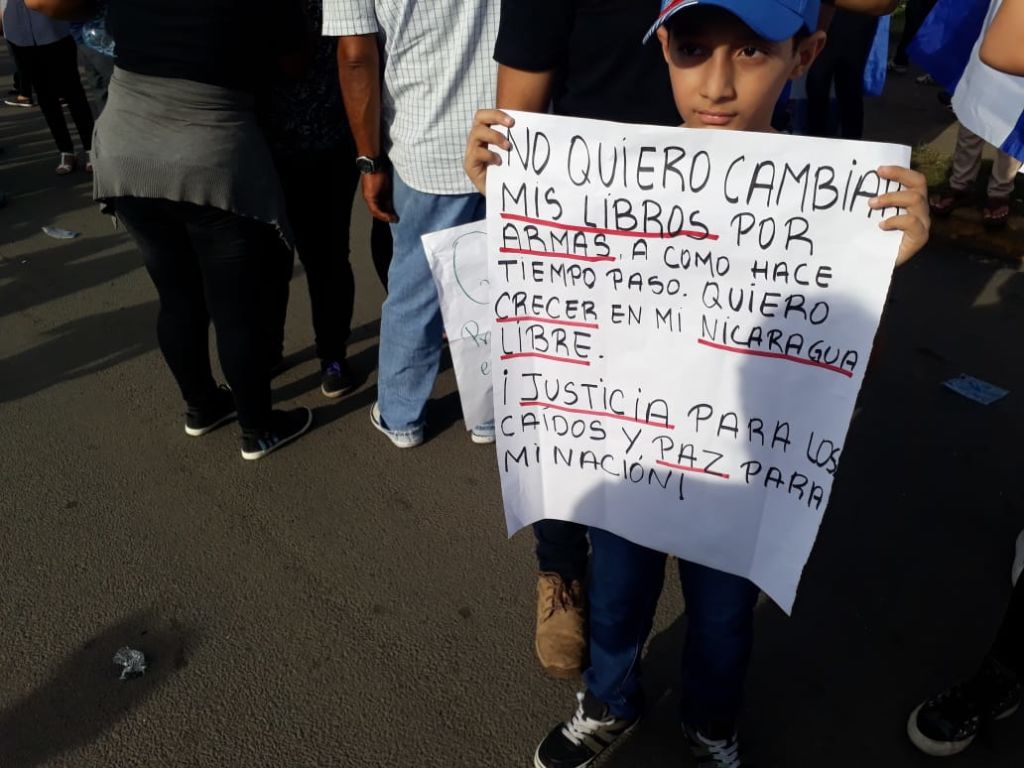 NO QUIERO CAMBIAR
MIS LIBROS POR
ARMAS, A COMO HACE
TIEMPO PASO. QUIERO
CRECER EN MI NICARAGUA
LIBRE.
¡JUSTICIA PARA LOS
CAÍDOS Y, PAZ PARA
MI NACIÓN!